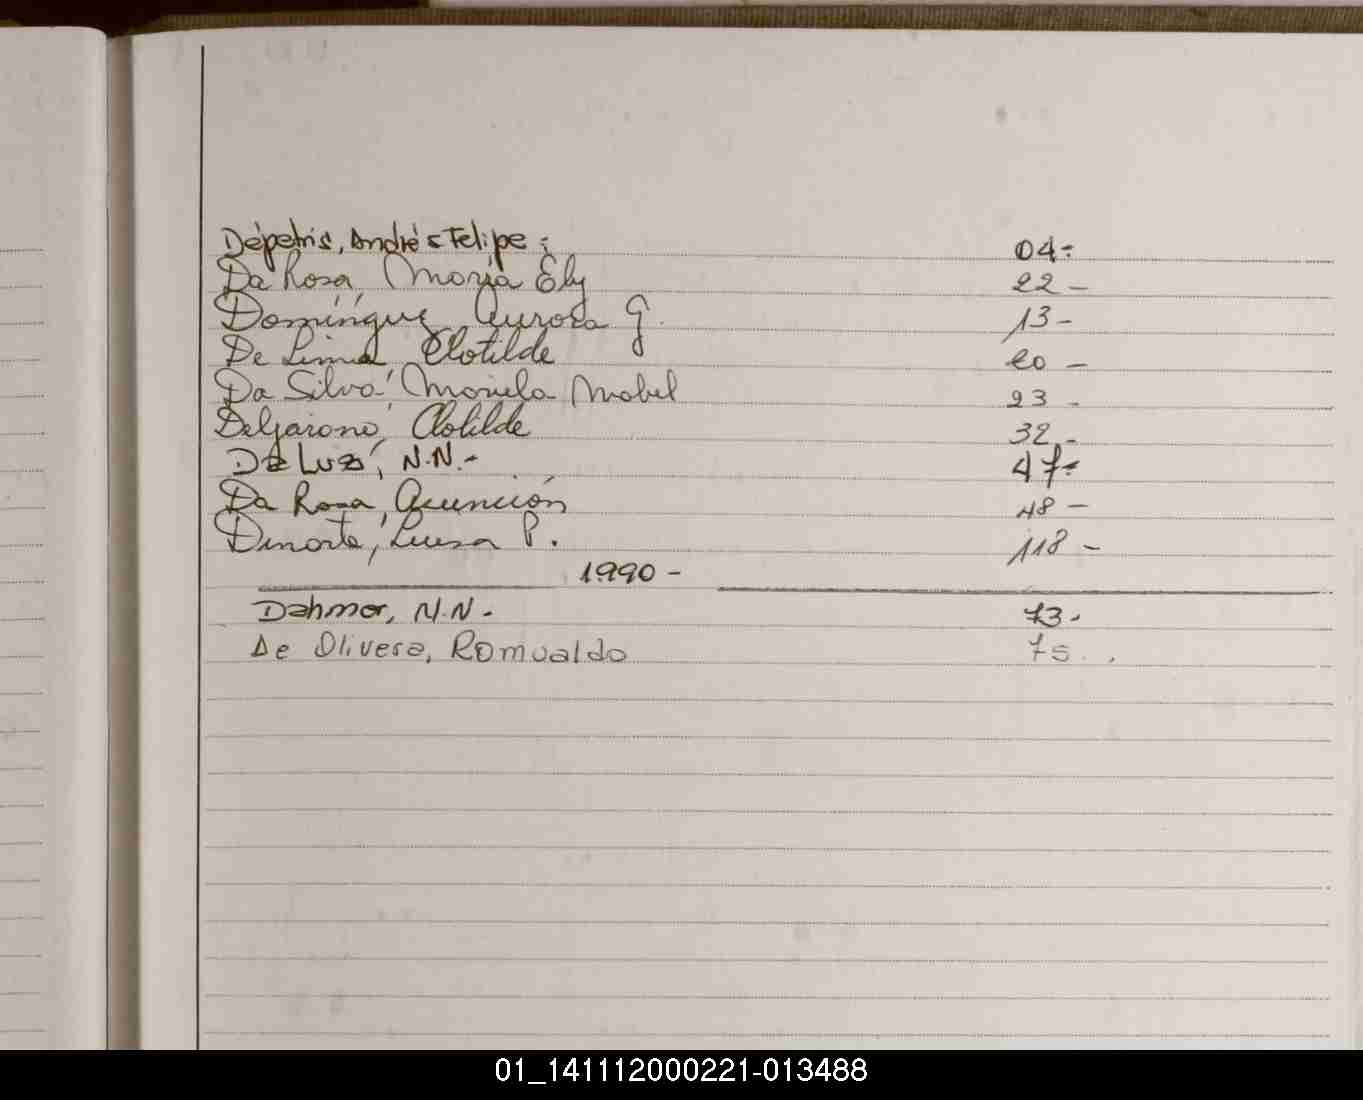 Dépetris, Andrés Felipe: 04-
Da Rosa, María Ely 22-
Domínguez, Aurora G. 13-
De Lima Clotilde 20-
Da Silva, Mariela Mabel 23-
Clotilde 32,-
De Luz, N.N.- 47-
Da Rosa, Asunción 48-
Dinarte, Luisa P. 118-
1990-
Dahmor, N.N.- 73.
De Olivera, Romualdo 75.
01_141112000221-013488